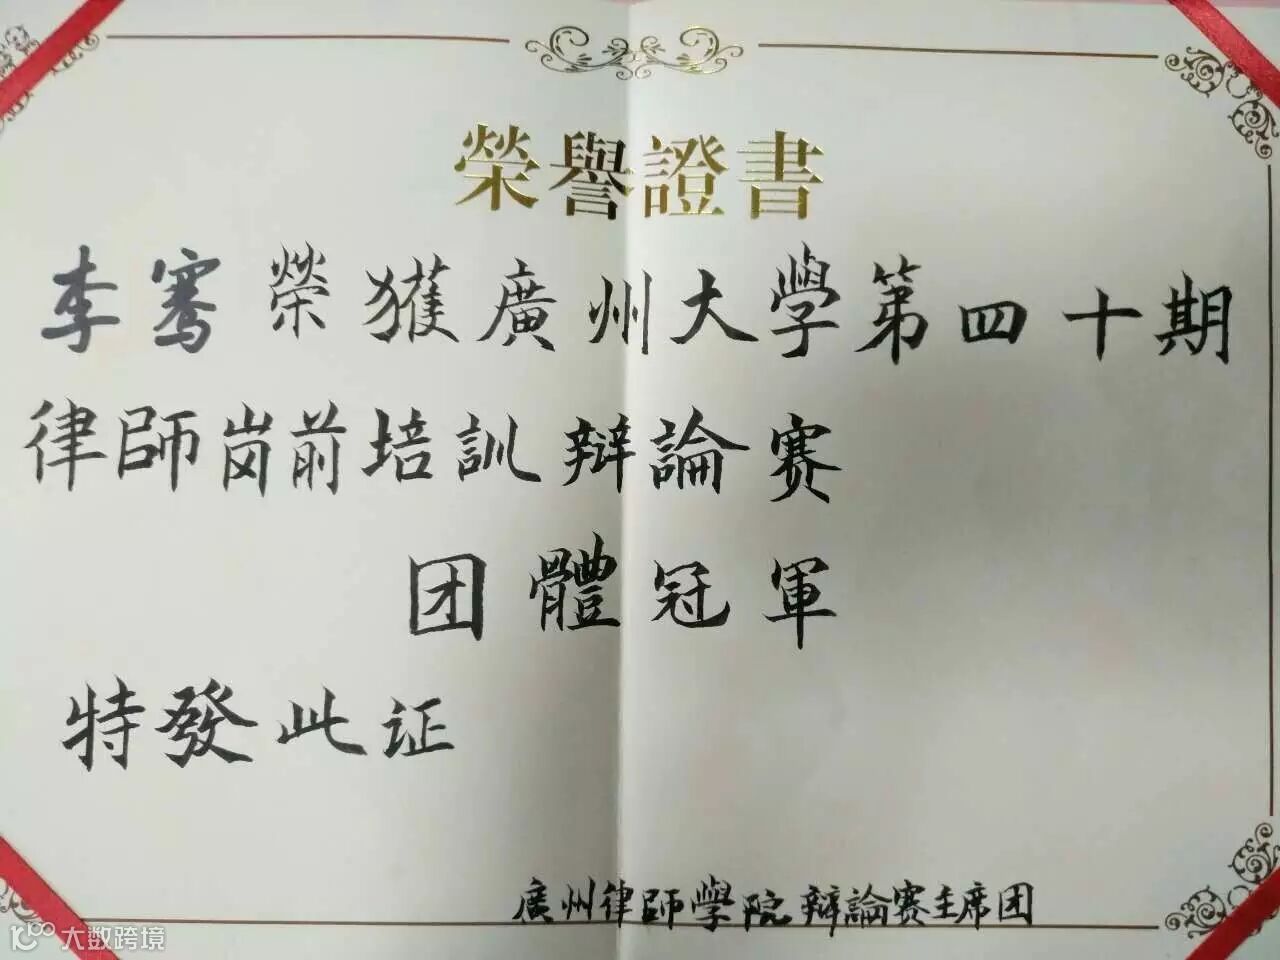 榮譽證書
李骞榮獲廣州大學第四十期
律師岗前培訓辯論賽
团體冠軍
特發此证
廣州律師學院辯論賽主席团
大数跨境